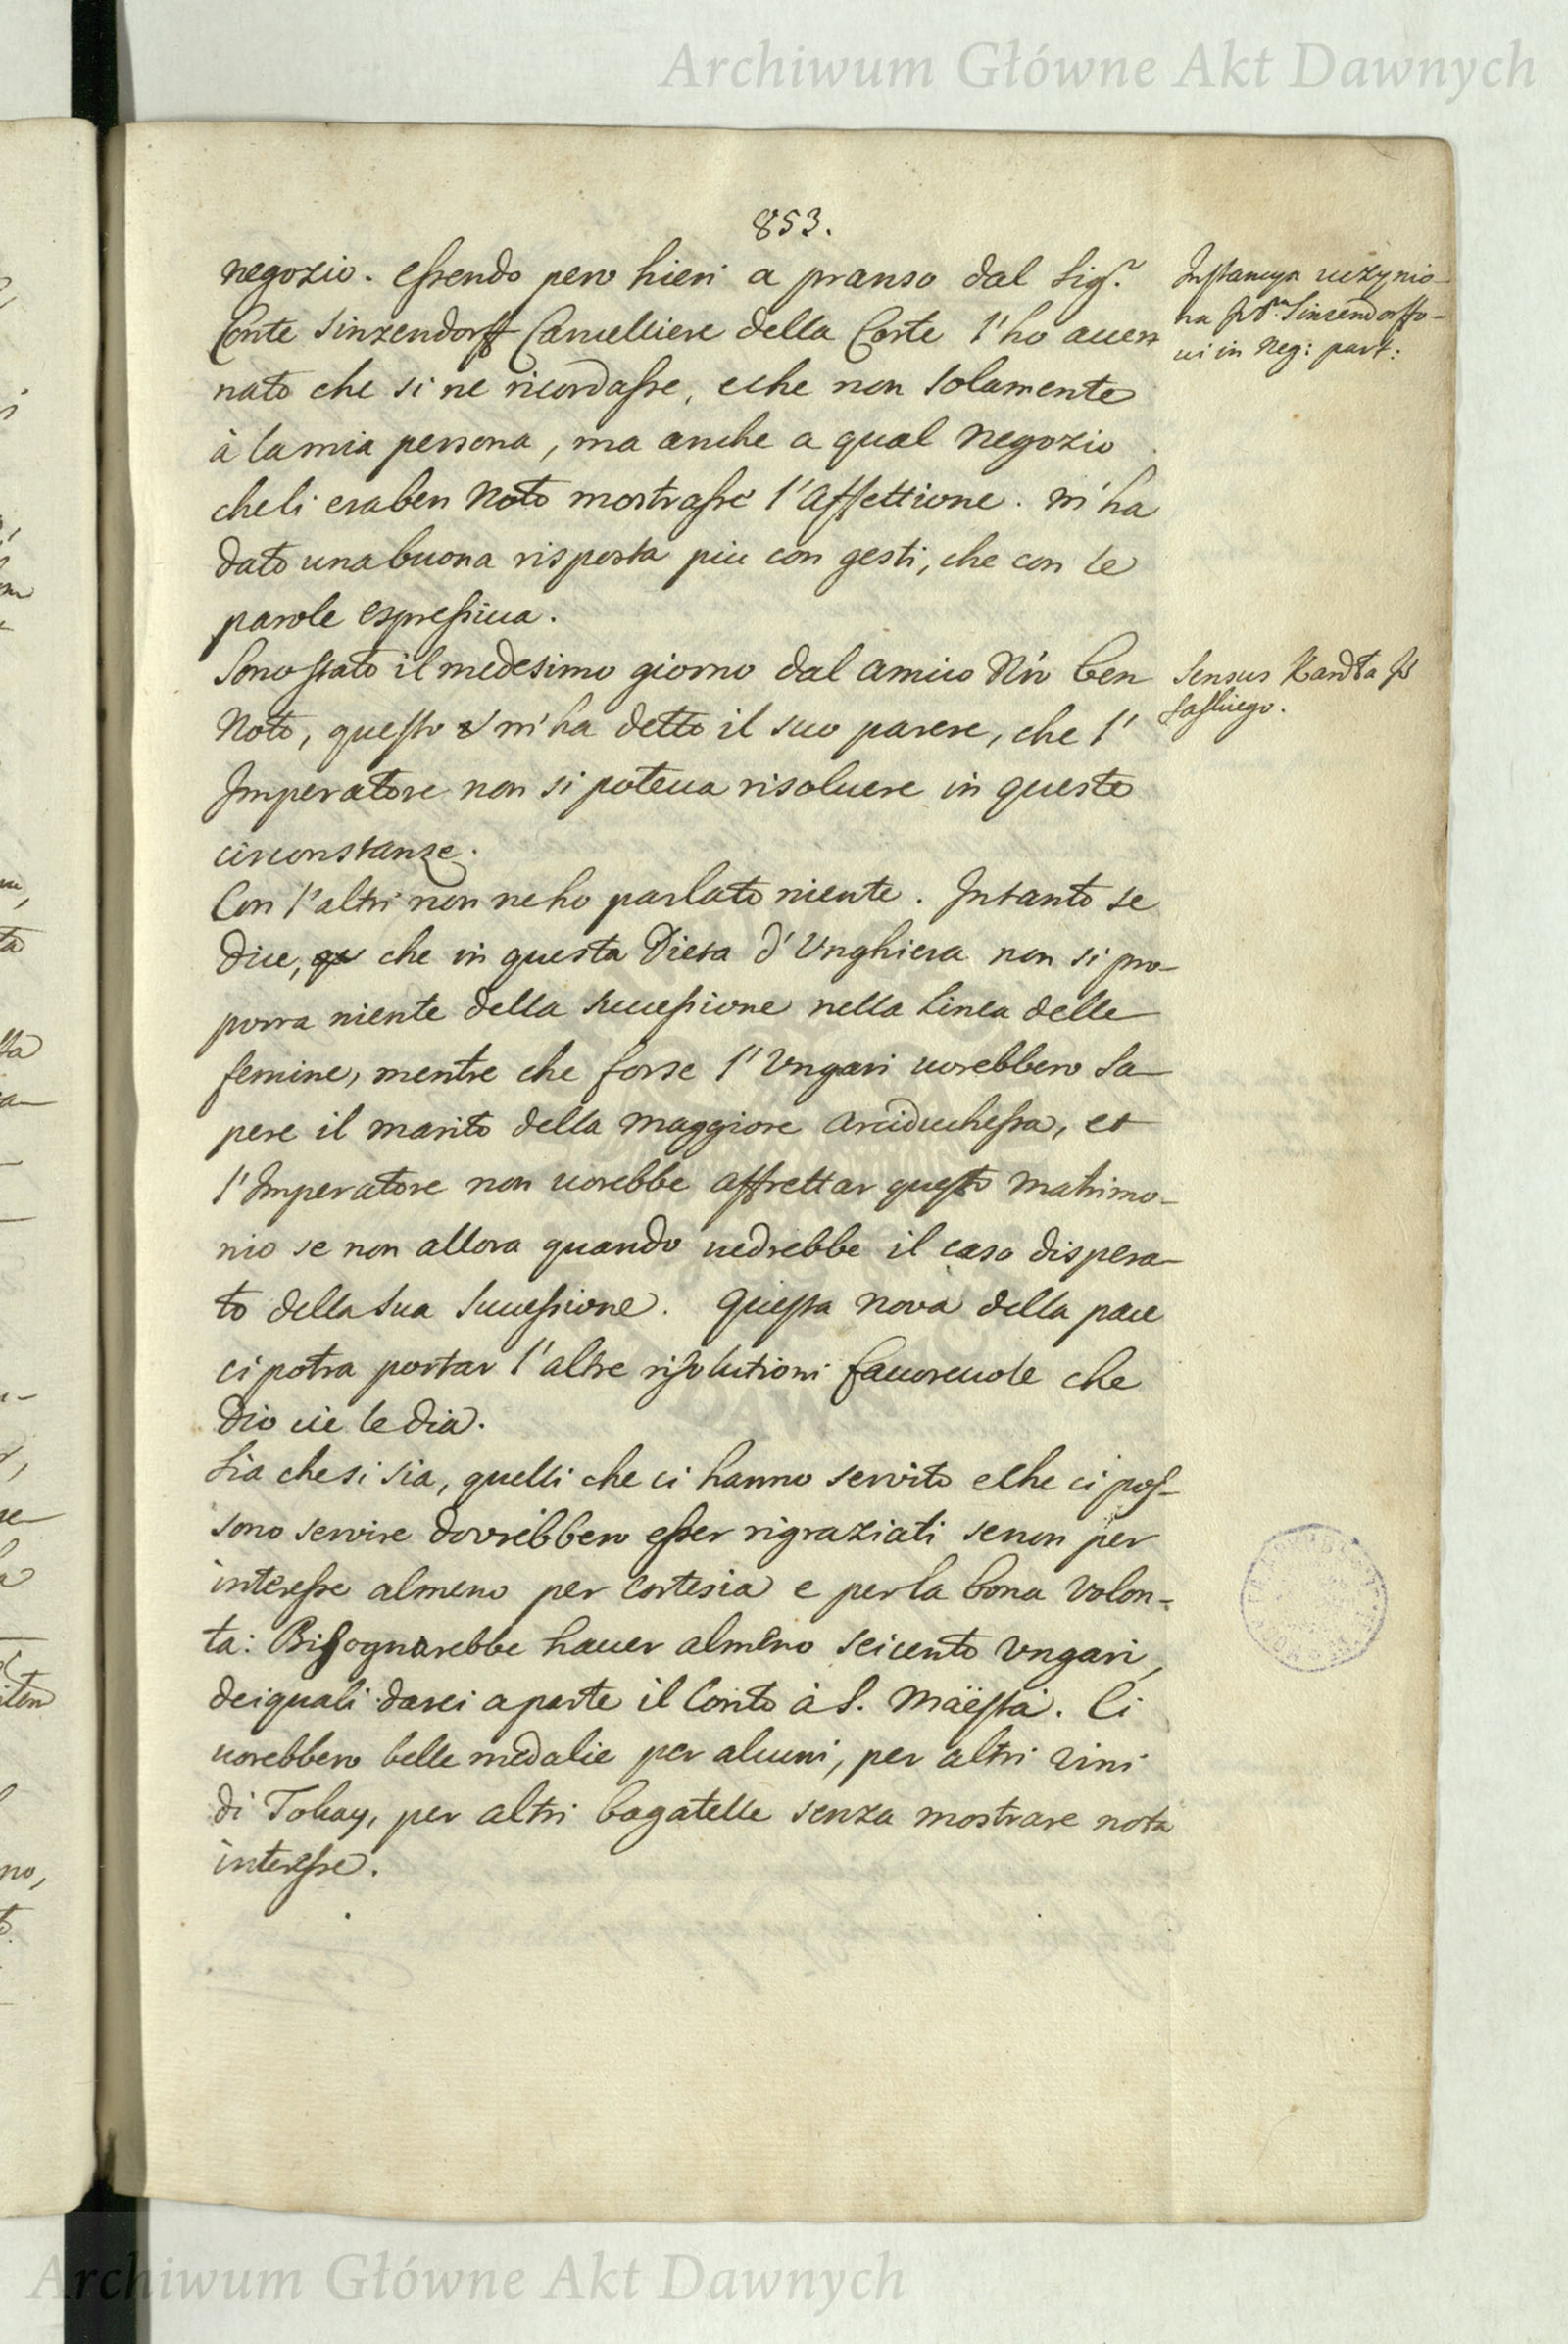 Archiwum Główne Akt Dawnych
853.
negozio. Essendo pero hieri a pranso dal Sig.r
Conte Sinzendorff Cancelliere della Corte l'ho accen
nato che si ne ricordasse, e che non solamente
à la mia persona, ma anche a qual negozio
che li era ben noto mostrasse l'affettione. M'ha
dato una buona risposta piu con gesti, che con le
parole espressiua.
Sono stato il medesimo giorno dal amico Nro ben
noto, questo m'ha detto il suo parere, che l'
Imperatore non si poteua risoluere in queste
circonstanze.
Con l'altri non ne ho parlato niente. Intanto se
dice, che in questa Dieta d'Unghiera non si pro-
porra niente della successione nella linea delle
femine, mentre che forse l'Ungari uorebbero sa-
pere il marito della maggiore Arciduchessa, et
l'Imperatore non uorebbe affrettar questo matrimo-
nio se non allora quando uedrebbe il caso dispera-
to della sua successione. Questa nova della pace
ci potra portar l'altre risolutioni fauoreuole che
Dio cie le dia.
Sia che si sia, quelli che ci hanno servito e che ci pos-
sono servire dovrebbero esser rigraziati se non per
interesse almeno per cortesia e per la bona volon-
ta: Bisognarebbe hauer almeno seicento Ungari,
dei quali darei a parte il Conto à S. Maëstà. Ci
uorebbero belle medalie per alcuni, per altri vini
di Tokay, per altri bagatelle senza mostrare nota
interesse.
Instancya uczynio-
na Sinzendorffo-
wi in Neg: part:
Sensus
Archiwum Główne Akt Dawnych